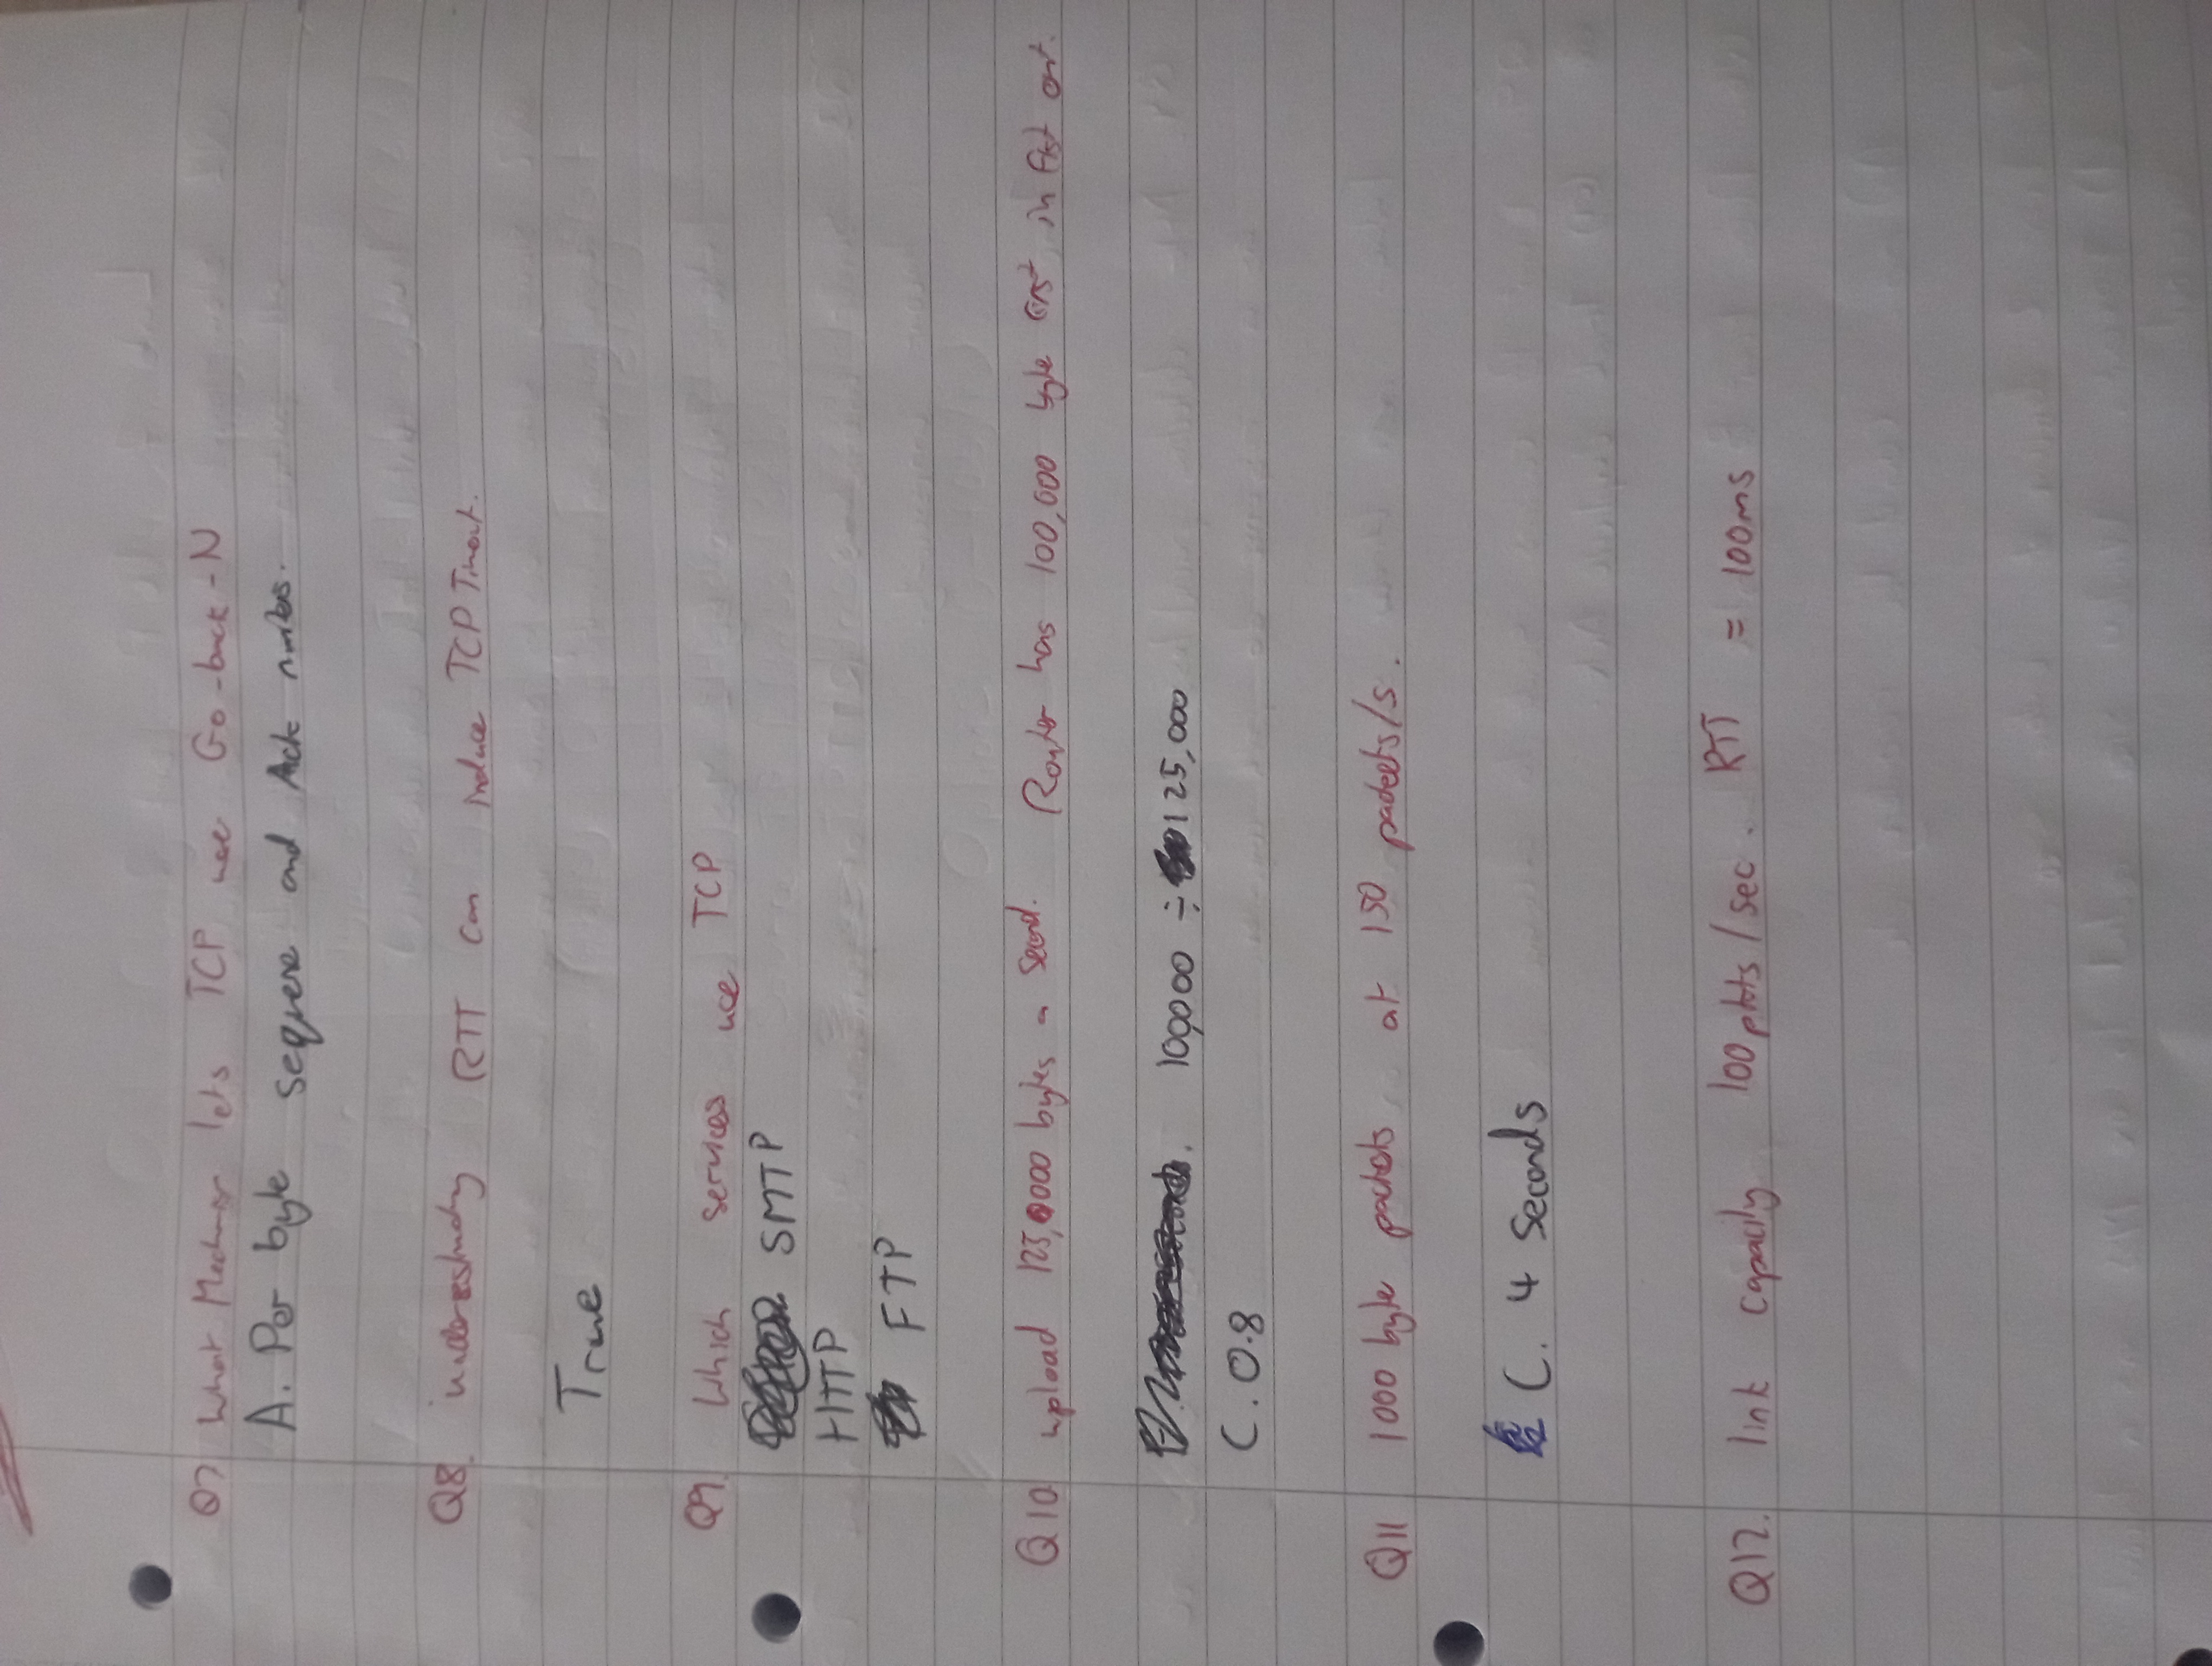 Q7 What Mechanism lets TCP use Go-back-N
A. Per byte sequence and Ack numbers.
Q8. underestimating RTT can induce TCP Timeout.
True
Q9. Which services use TCP
SMTP
HTTP
FTP
Q10 upload 125,000 bytes a second. Router has 100,000 byte first in first out.
100,000 ÷ 125,000
C. 0.8
Q11 1000 byte packets at 150 packets/s.
C. 4 Seconds
Q12. link capacity 100 pkts/sec. RTT = 100ms